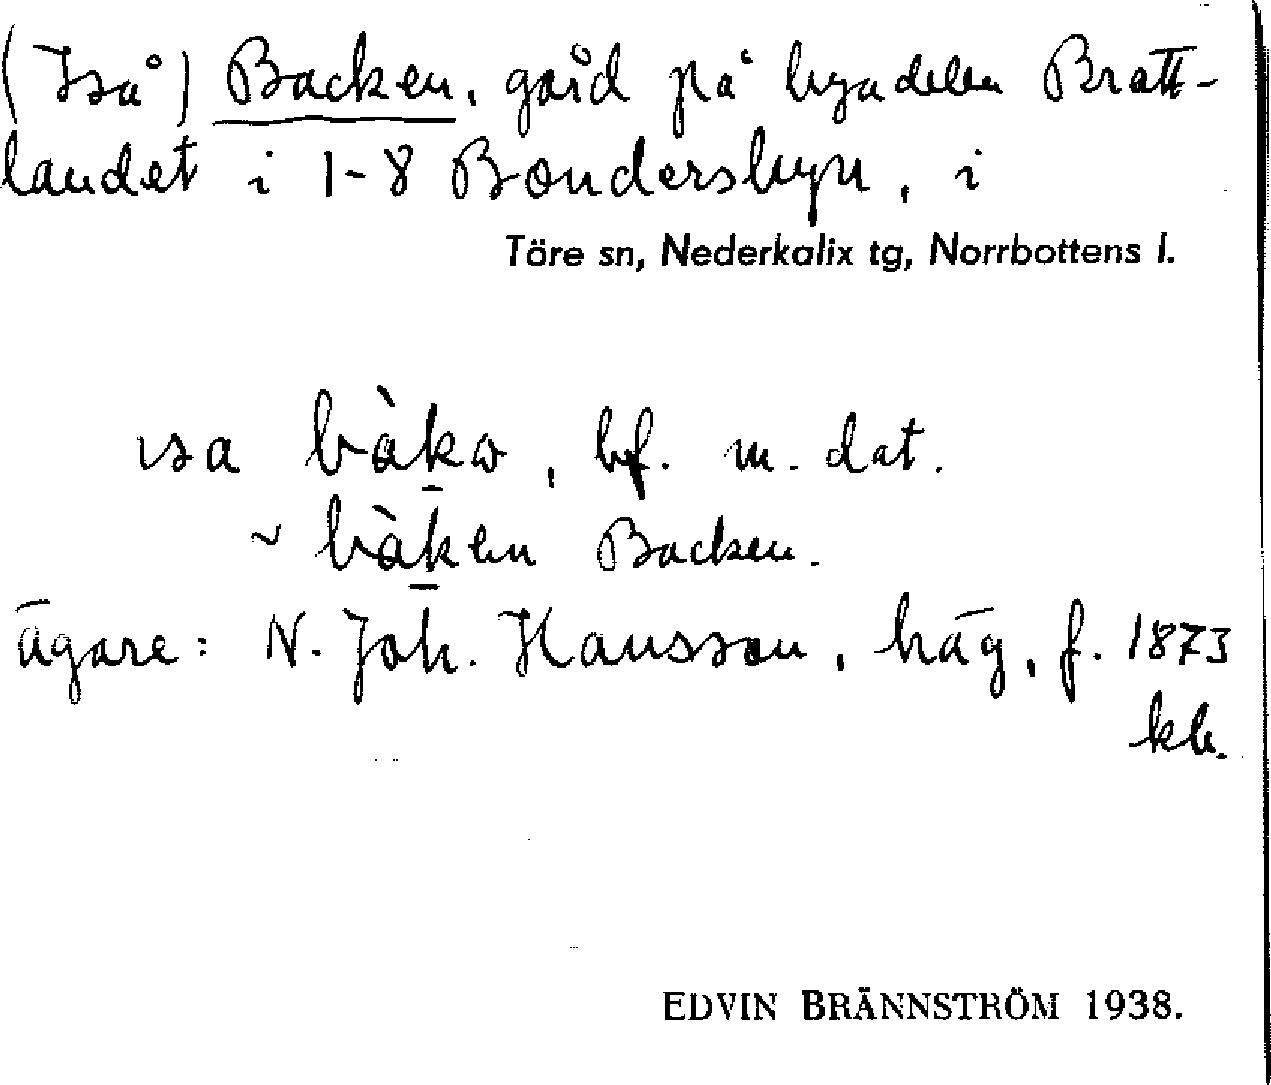 (Iså) Backen, gård på byadelen Bratt-
landet i 1-8 Bondersbyn, i
Töre sn, Nederkalix tg, Norrbottens l.
ısa bàkω, bf. m. dat.
~ bàken Backen.
ägare: N. Joh. Hansson, häg, f. 1873
kb.
EDVIN BRÄNNSTRÖM 1938.